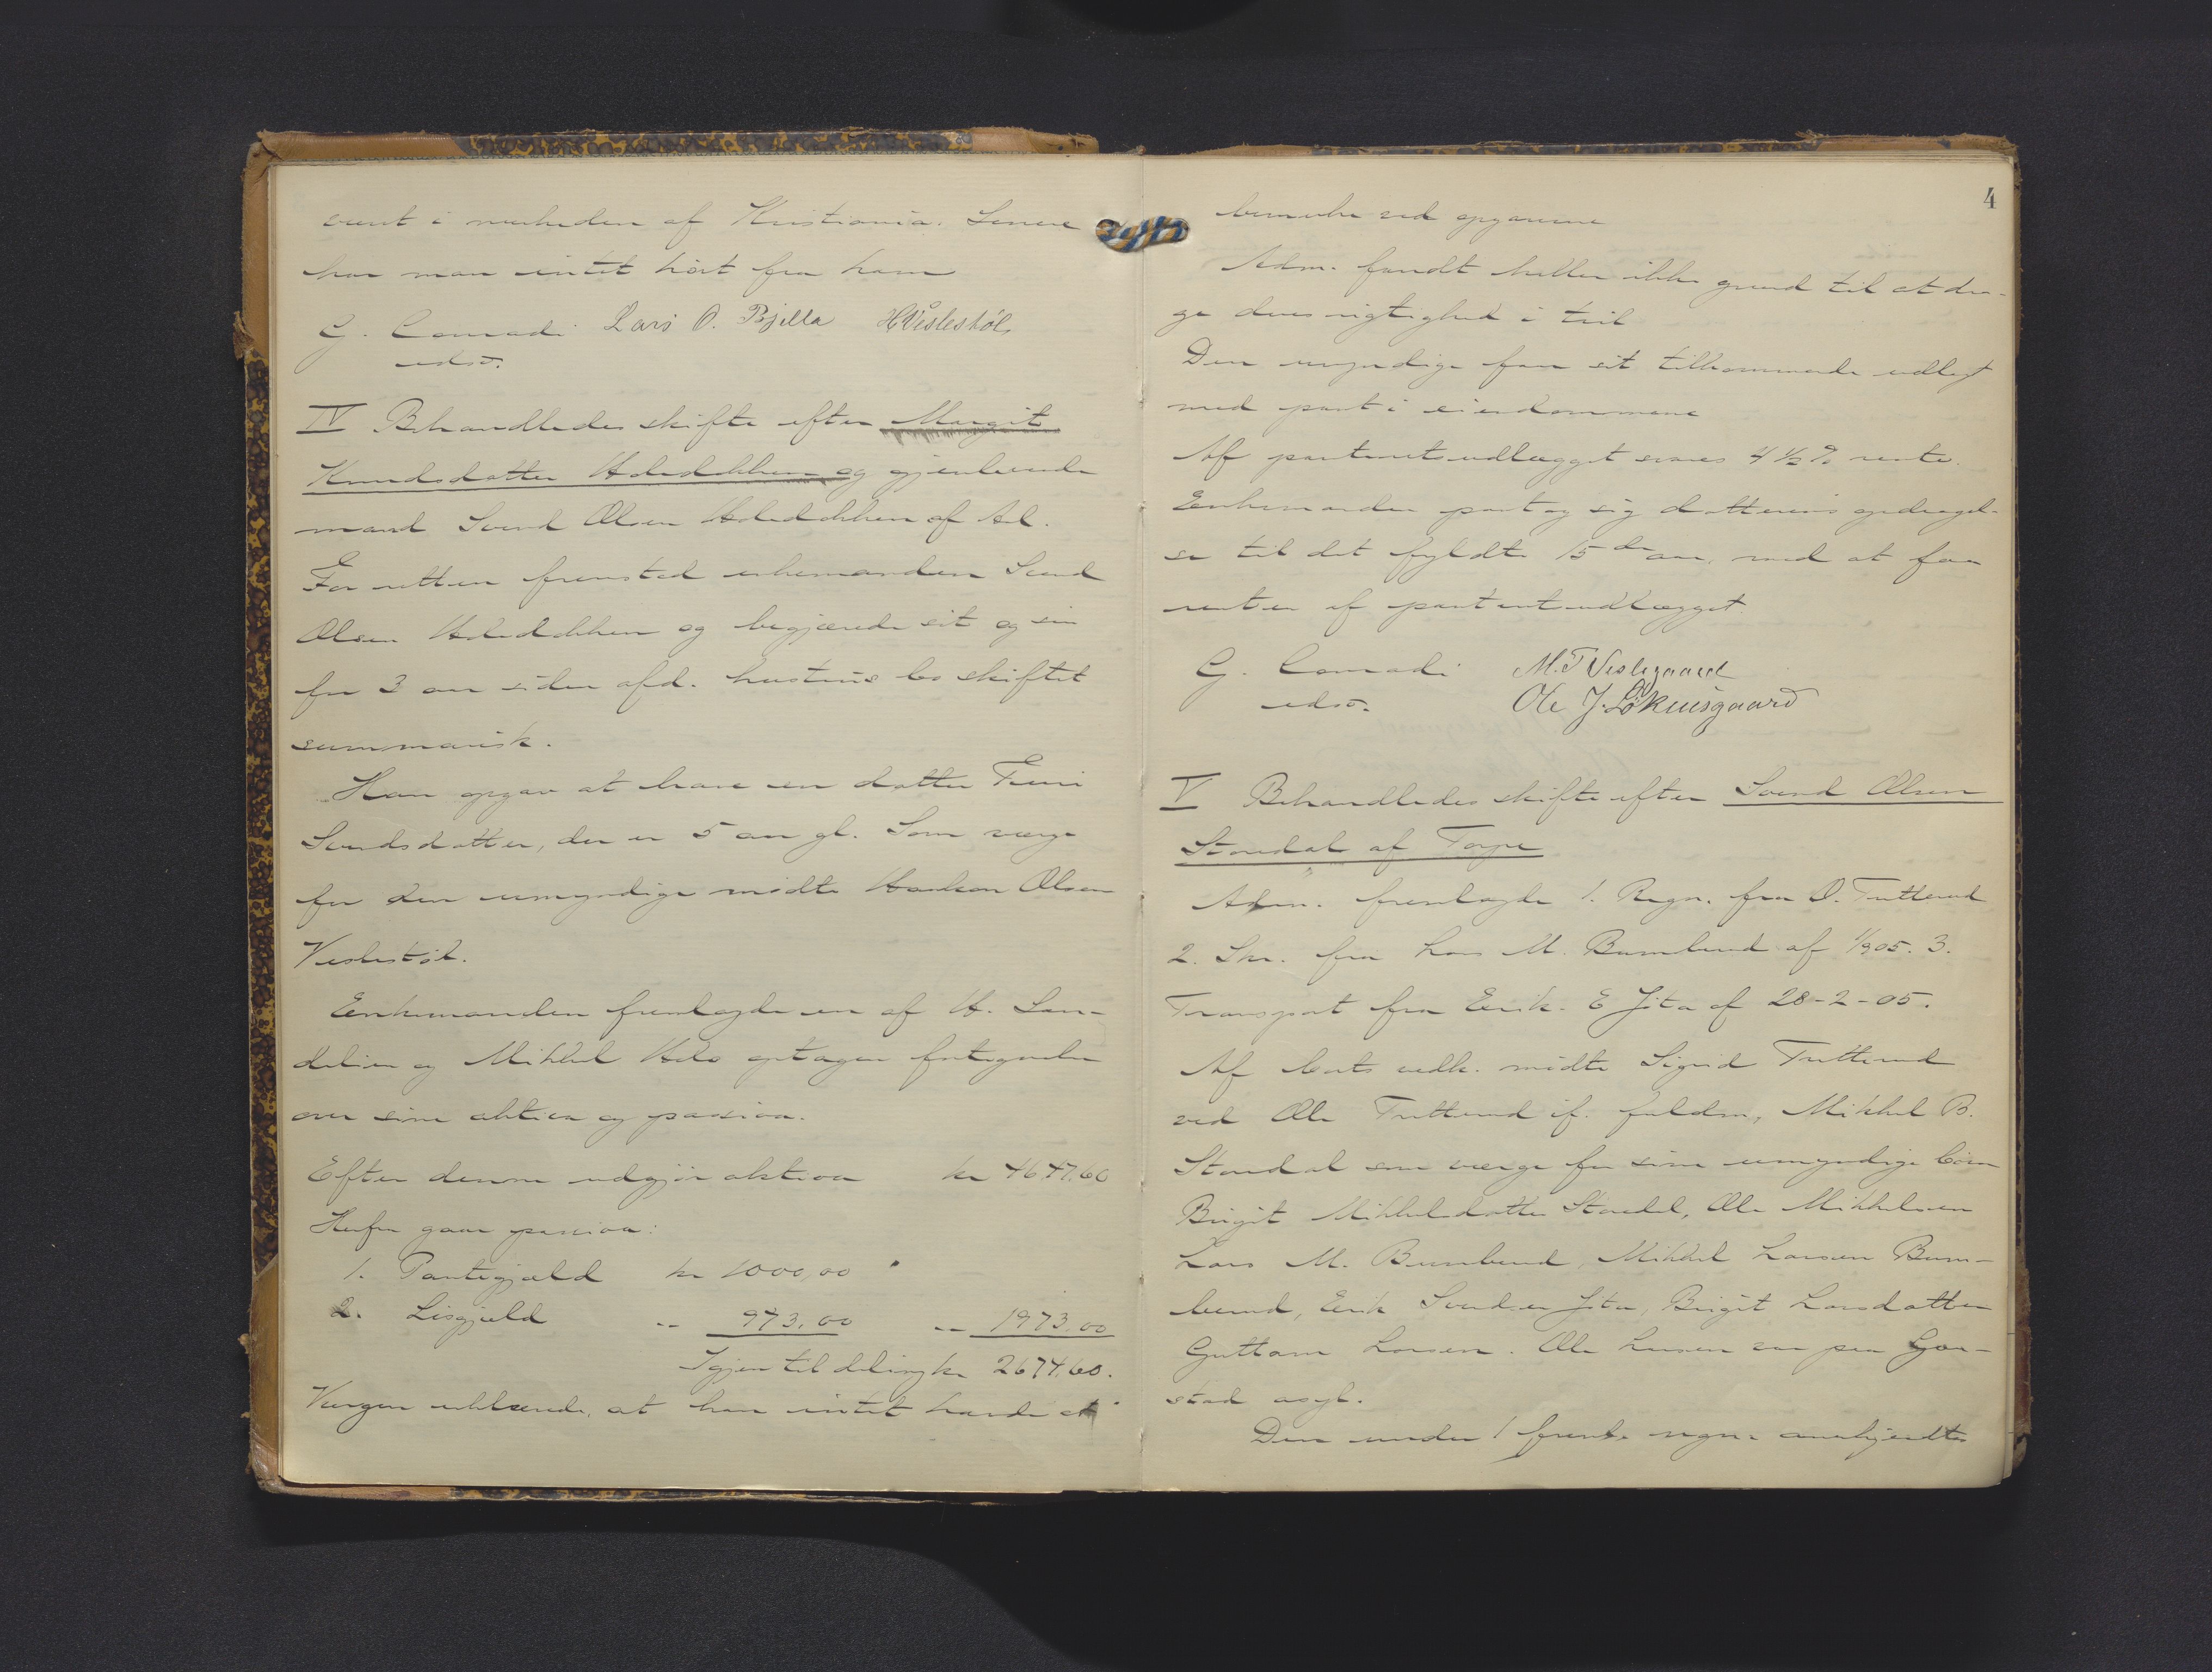 været i nærheden af Kristiania. Senere
har man intet hørt fra ham
G. Conradi Lars O. Bjella HVeslestøl
edsv.
IV Behandledes skifte efter Margit
Knudsdatter og gjenlevende
mand Svend Olsen af Aal.
For retten fremstod enkemanden Svend
Olsen og begjærede sit og sin
for 3 aar siden afd. hustrus bo skiftet
summarisk.
Han opgav at have en datter
Svendsdatter, der er 5 aar gl. Som værge
for den umyndige mødte Haakon Olsen
Veslestøl.
Enkemanden fremlagde en af H. San-
og Mikkel optagen fortegnelse
over sine aktiva og passiva.
Efter denne udgjør aktiva kr 4647.60
Herfra gaar passiva:
1. Pantegjæld kr 1000,00
2. Løsgjæld -- 973.00 -- 1973.00
Igjen til deling kr 2674.60.
Værgen erklærede, at han intet havde at
4
bemærke ved opgaverne
Adm. fandt heller ikke grund til at dra-
ge deres rigtighed i tvil
Den umyndige faar sit tilkommende udlagt
med pant i eiendommene
Af panteretsudlægget svares 4 ½ % rente.
Enkemanden paatog sig datterens opdragel-
se til det fyldte 15de aar, mod at faa
renten af panteretsudlægget.
G. Conradi M. T Veslegaard
edsv. Ole J. Løkensgaard
V Behandledes skifte efter Svend Olsen
Stendal af Torpe
Adm. fremlagde 1. Regn. fra O. Tutterud
2. Skr. fra Lars M. af 1/3 05. 3.
Transport fra Eirik. E af 28-2-05.
Af boets vedk. mødte Sigrid Tutterud
ved Ole Tutterud if. fuldm, Mikkel B.
Stendal som værge for sine umyndige børn
Birgit Mikkelsdatter Stendal, Ole Mikkelsen
Lars M. Mikkel Larsen
Eirik Svendsen Birgit Larsdatter
Guttorm Larsen. Ole Larsen var paa Gau-
stad asyl.
Den under 1 freml. regn. anerkjendtes